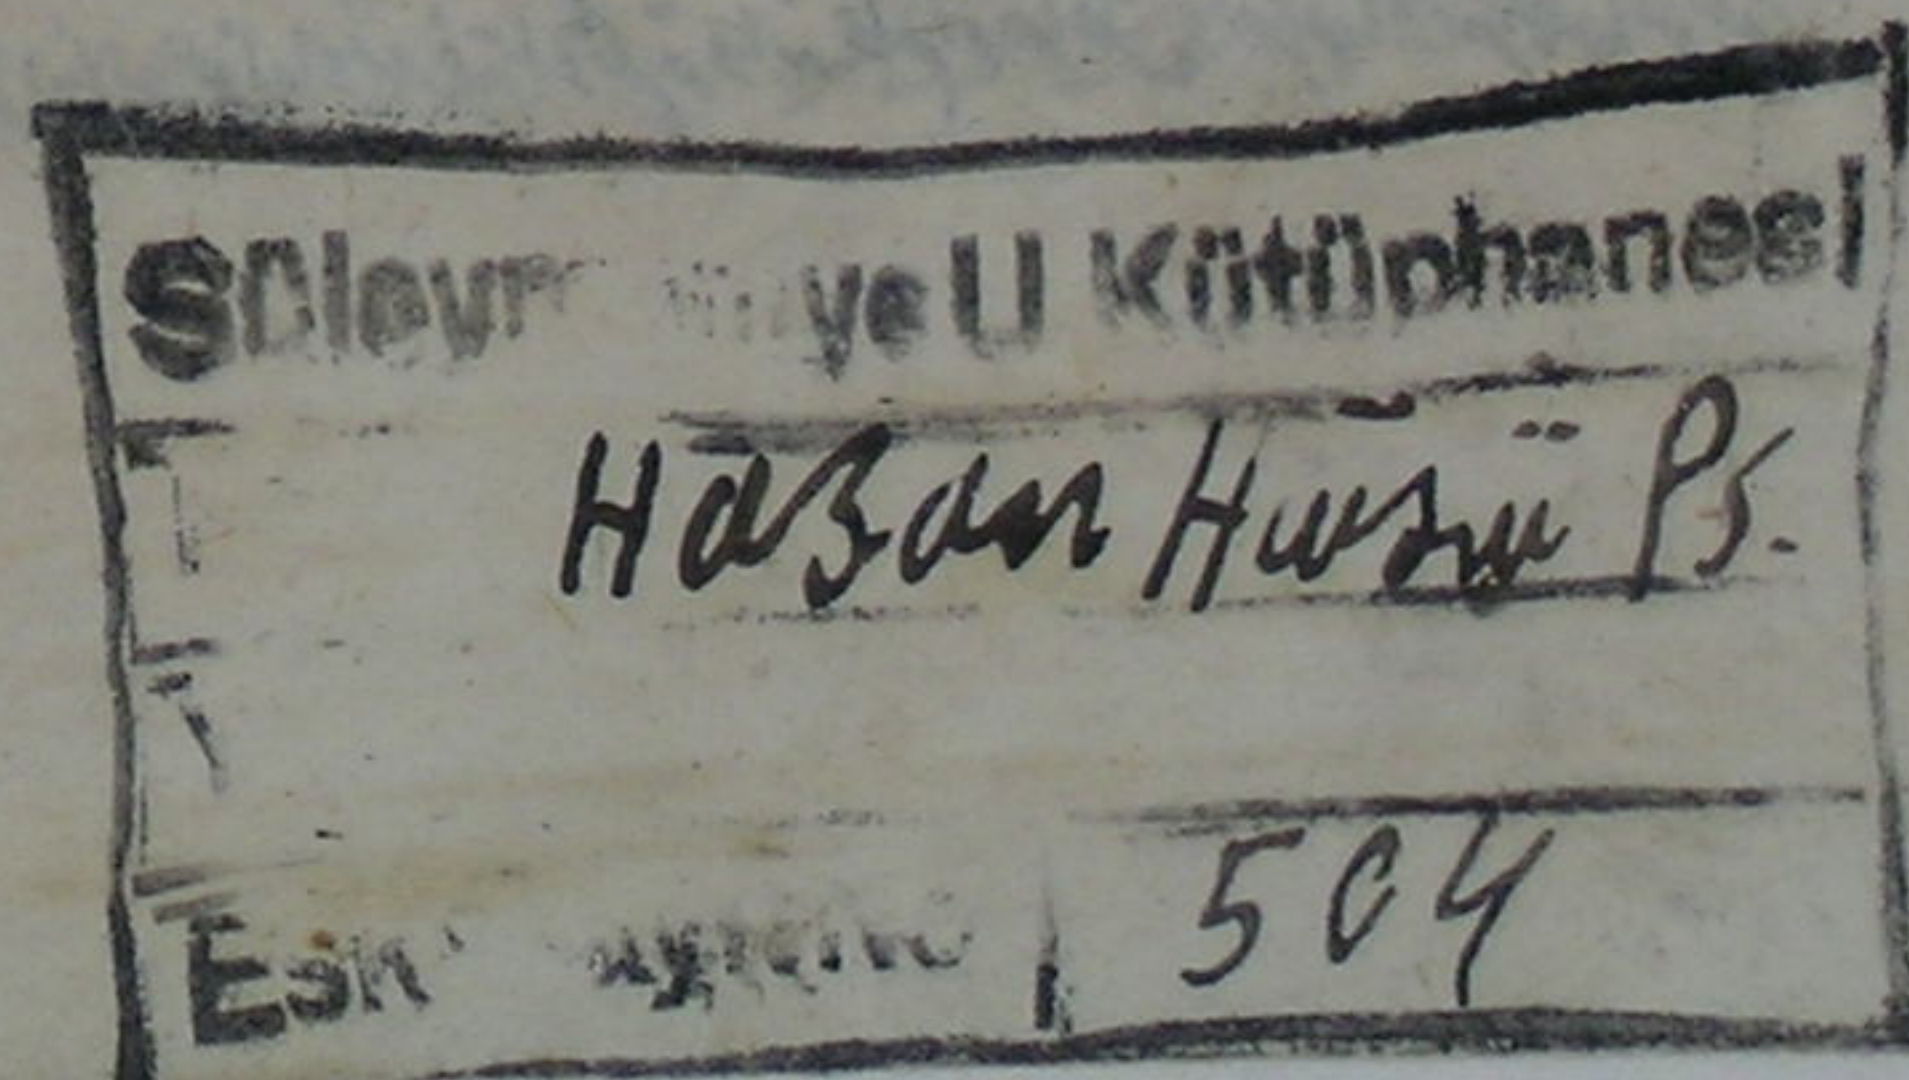 Süleymaniye U Kütüphanesi
Hasan Hüsnü Pş.
Eski Kayıt No 504